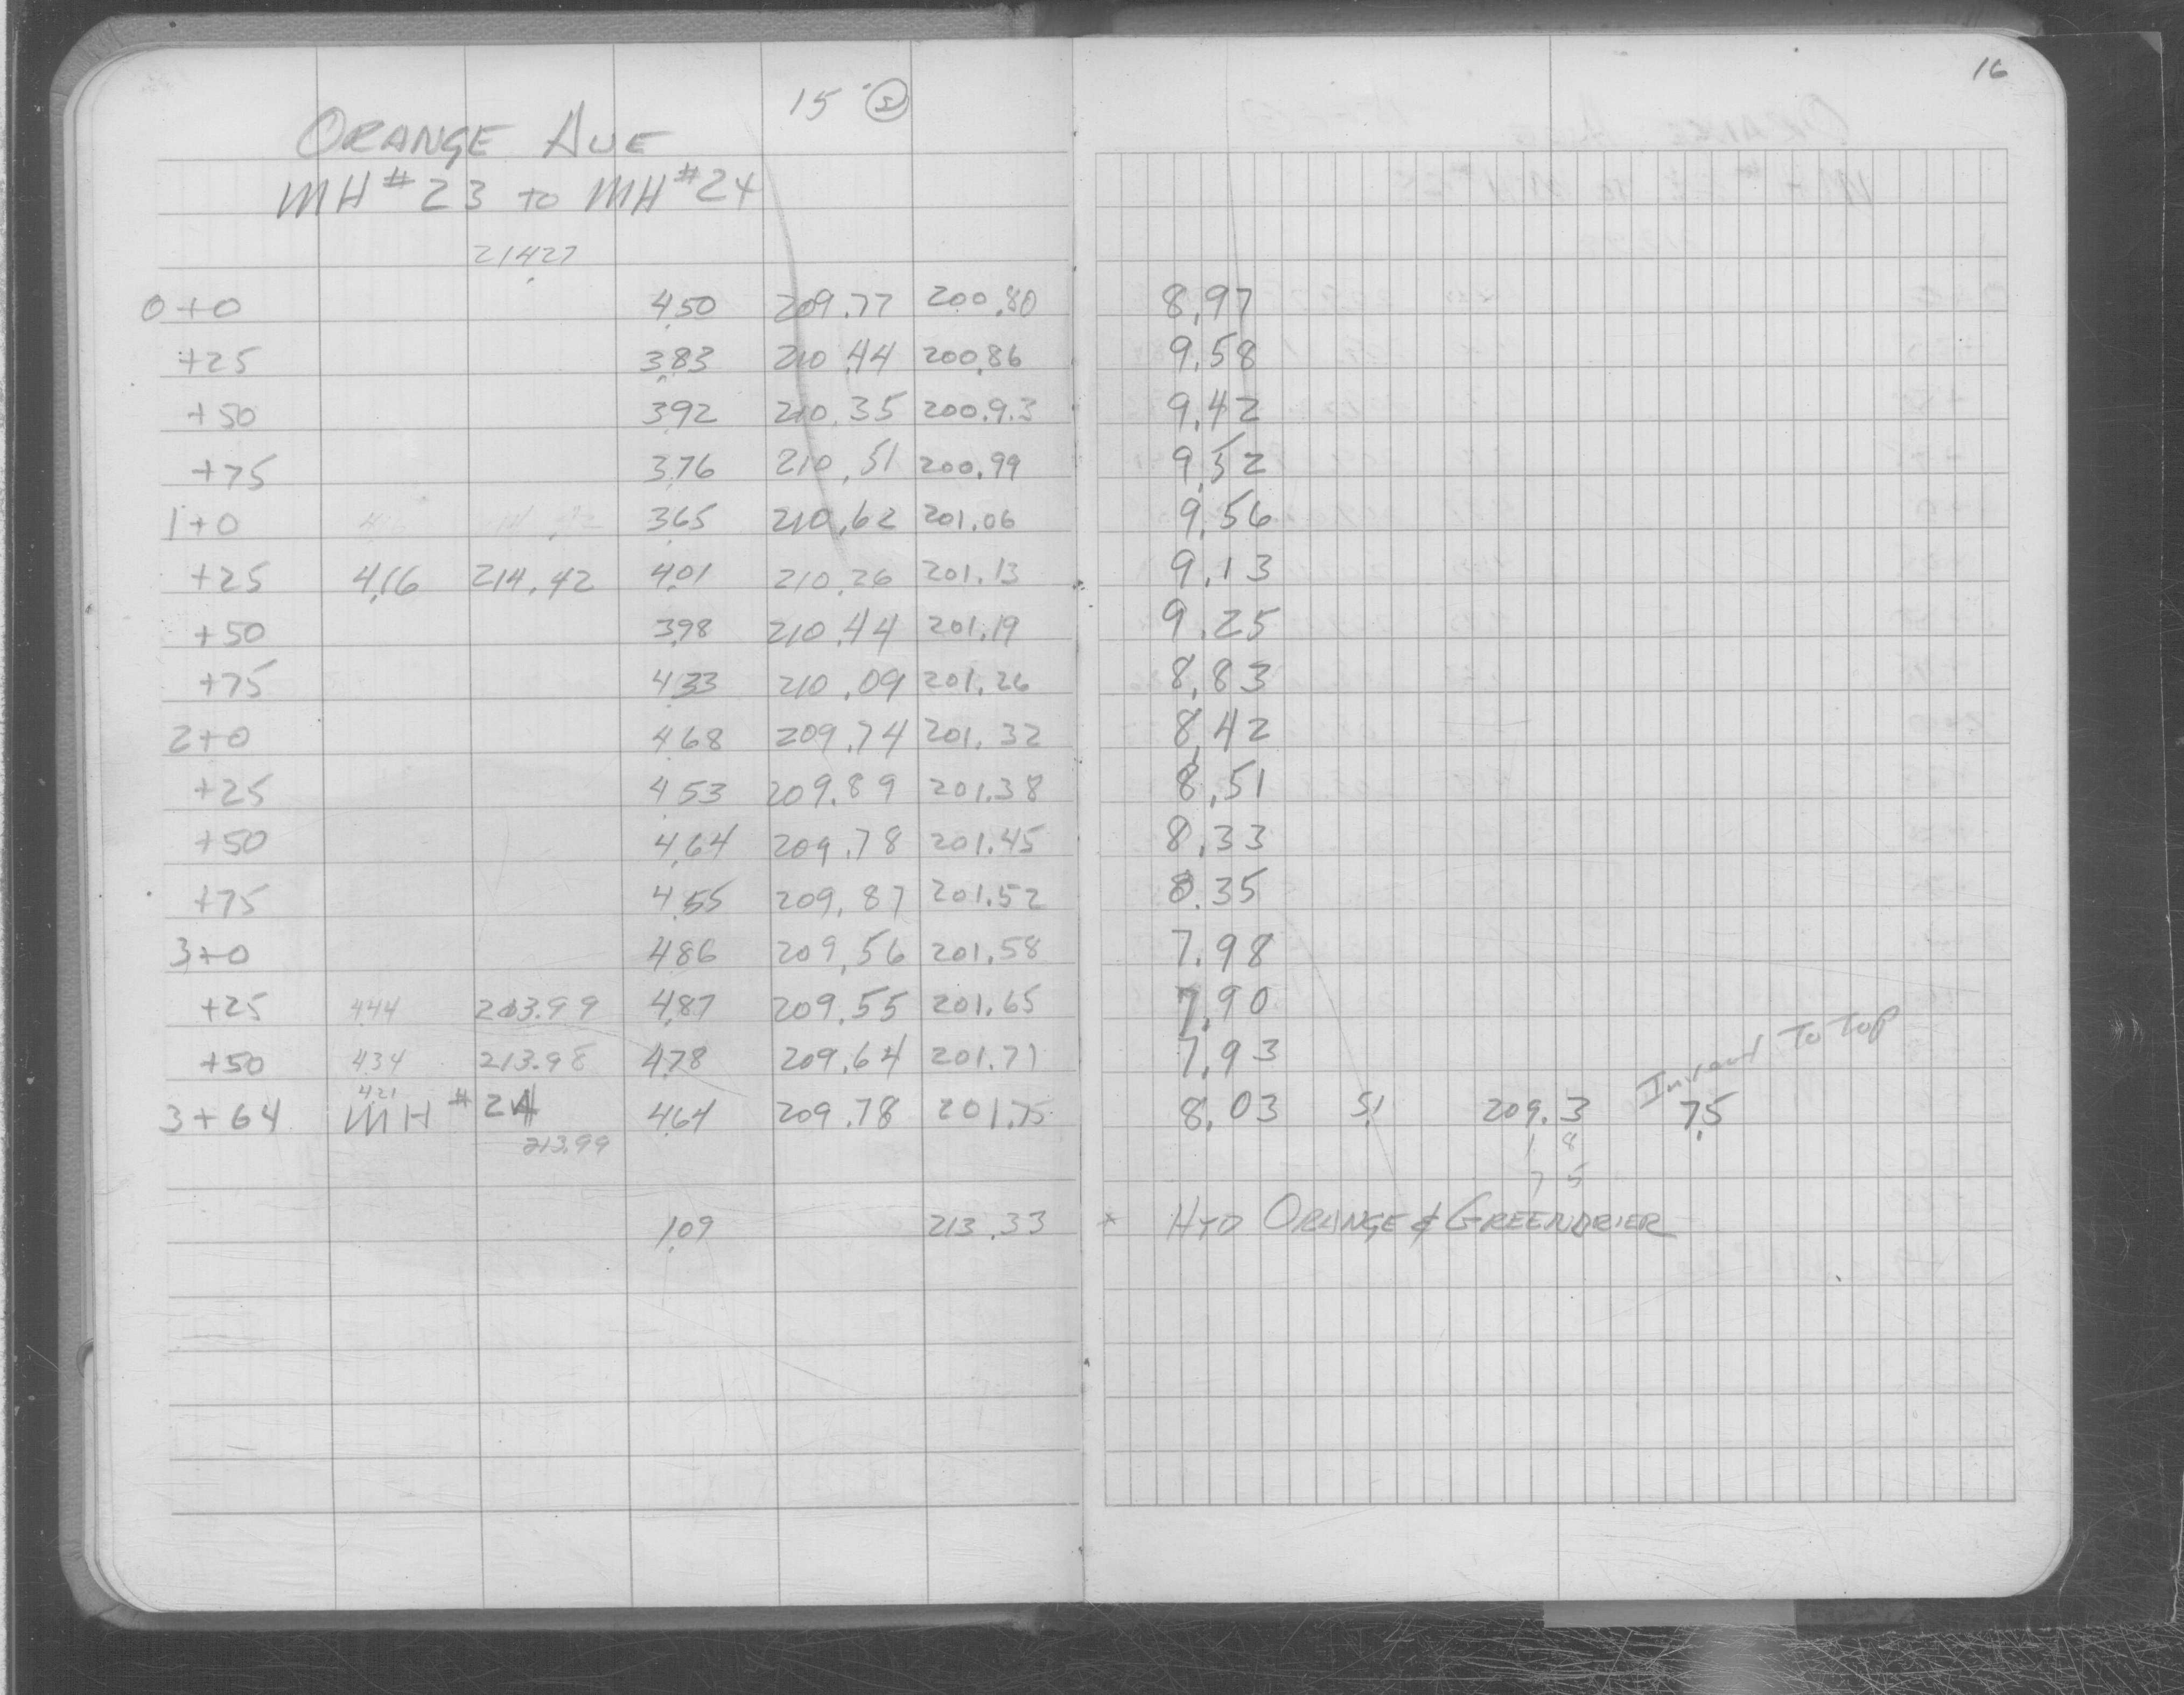 15" 16
ORANGE AVE
MH #23 to MH #24
214.27
0+0 4.50 209.77 200.80 8.97
+25 3.83 210.44 200.86 9.58
+50 3.92 210.35 200.93 9.42
+75 3.76 210.51 200.99 9.52
1+0 3.65 210.62 201.06 9.56
+25 4.16 214.42 4.01 210.26 201.13 9.13
+50 3.98 210.44 201.19 9.25
+75 4.33 210.09 201.26 8.83
2+0 4.68 209.74 201.32 8.42
+25 4.53 209.89 201.38 8.51
+50 4.64 209.78 201.45 8.33
+75 4.55 209.87 201.52 8.35
3+0 4.86 209.56 201.58 7.98
+25 4.44 213.99 4.87 209.55 201.65 7.90
+50 4.34 213.98 4.78 209.64 201.71 7.93
4.21 To Top
3+64 MH #24 4.64 209.78 201.75 8.03 5.1 209.3 7.5
213.99 1 8
7 5
1.09 213.33 * HYD ORANGE & GREENBRIER